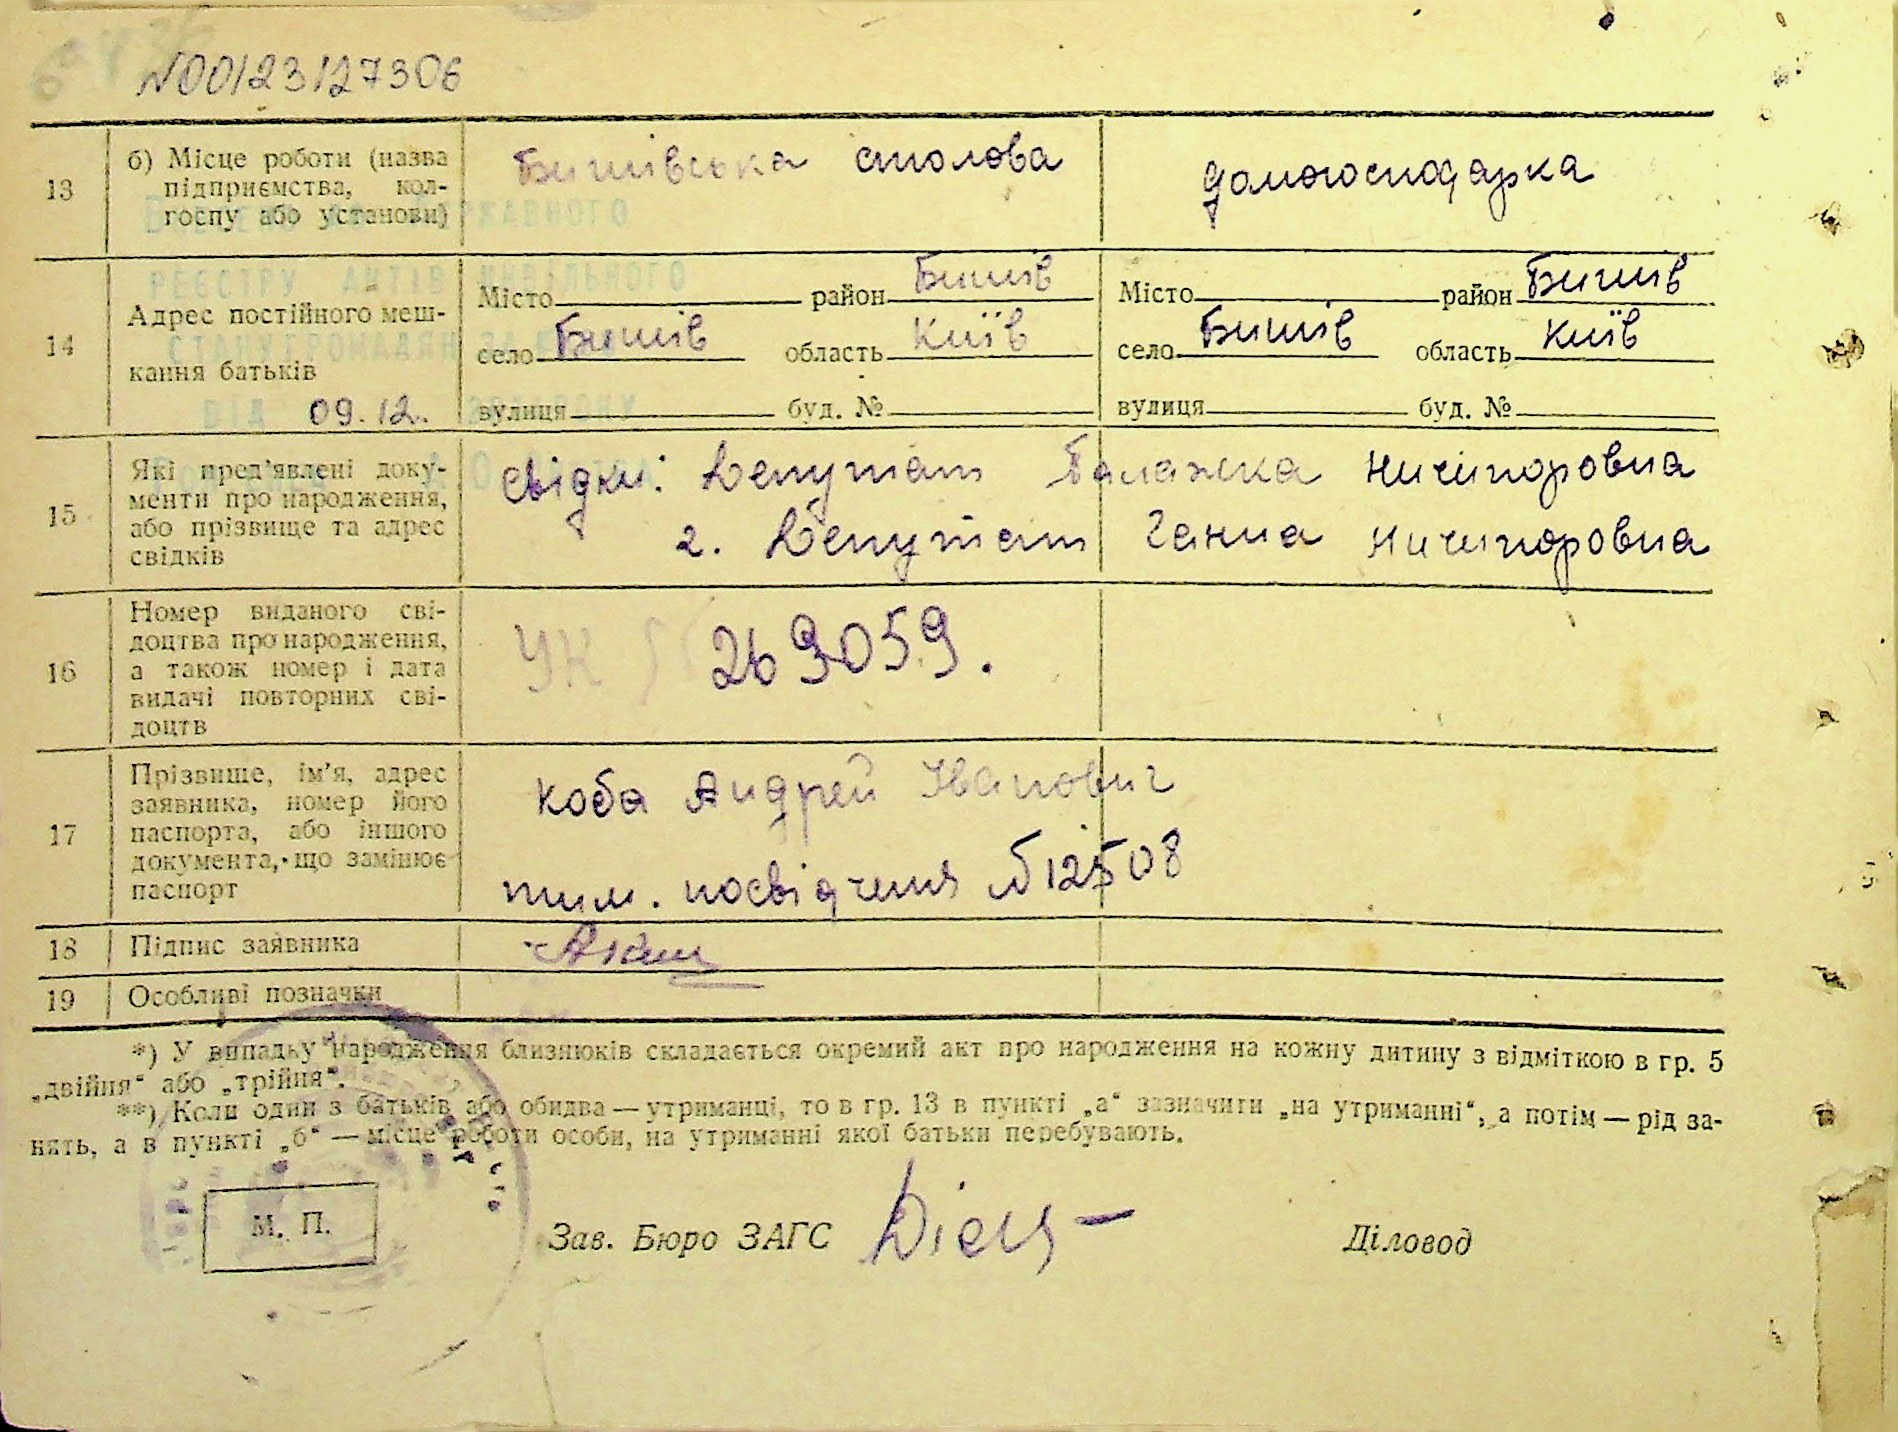 N00123127306
13
б) Місце роботи (назва
підприємства, кол-
госпу або установи)
Бишівська столова
домогосподарка
ДЕРЖАВНОГО
РЕЄСТРУ АКТІВ ЦИВІЛЬНОГО
СТАНУ ГРОМАДЯН
ВІД 09.12.
14
Адрес постійного меш-
кання батьків
Місто район Бишів
село Бишів область Київ
вулиця буд. №
Місто район Бишів
село Бишів область Київ
вулиця буд. №
15
Які пред'явлені доку-
менти про народження,
або прізвище та адрес
свідків
свідки: Депутат Палажка Ничипоровна
2. Депутат Ганна Ничипоровна
16
Номер виданого сві-
доцтва про народження,
а також номер і дата
видачі повторних сві-
доцтв
УК № 269059.
17
Прізвище, ім'я, адрес
заявника, номер його
паспорта, або іншого
документа, що замінює
паспорт
Коба Андрей Іванович
тим. посвідчення № 12508
18
Підпис заявника
19
Особливі позначки
*) У випадку народження близнюків складається окремий акт про народження на кожну дитину з відміткою в гр. 5
„двійня“ або „трійня“.
**) Коли один з батьків або обидва — утриманці, то в гр. 13 в пункті „а“ зазначити „на утриманні“, а потім — рід за-
нять, а в пункті „б“ — місце роботи особи, на утриманні якої батьки перебувають.
М. П.
Зав. Бюро ЗАГС
Діловод